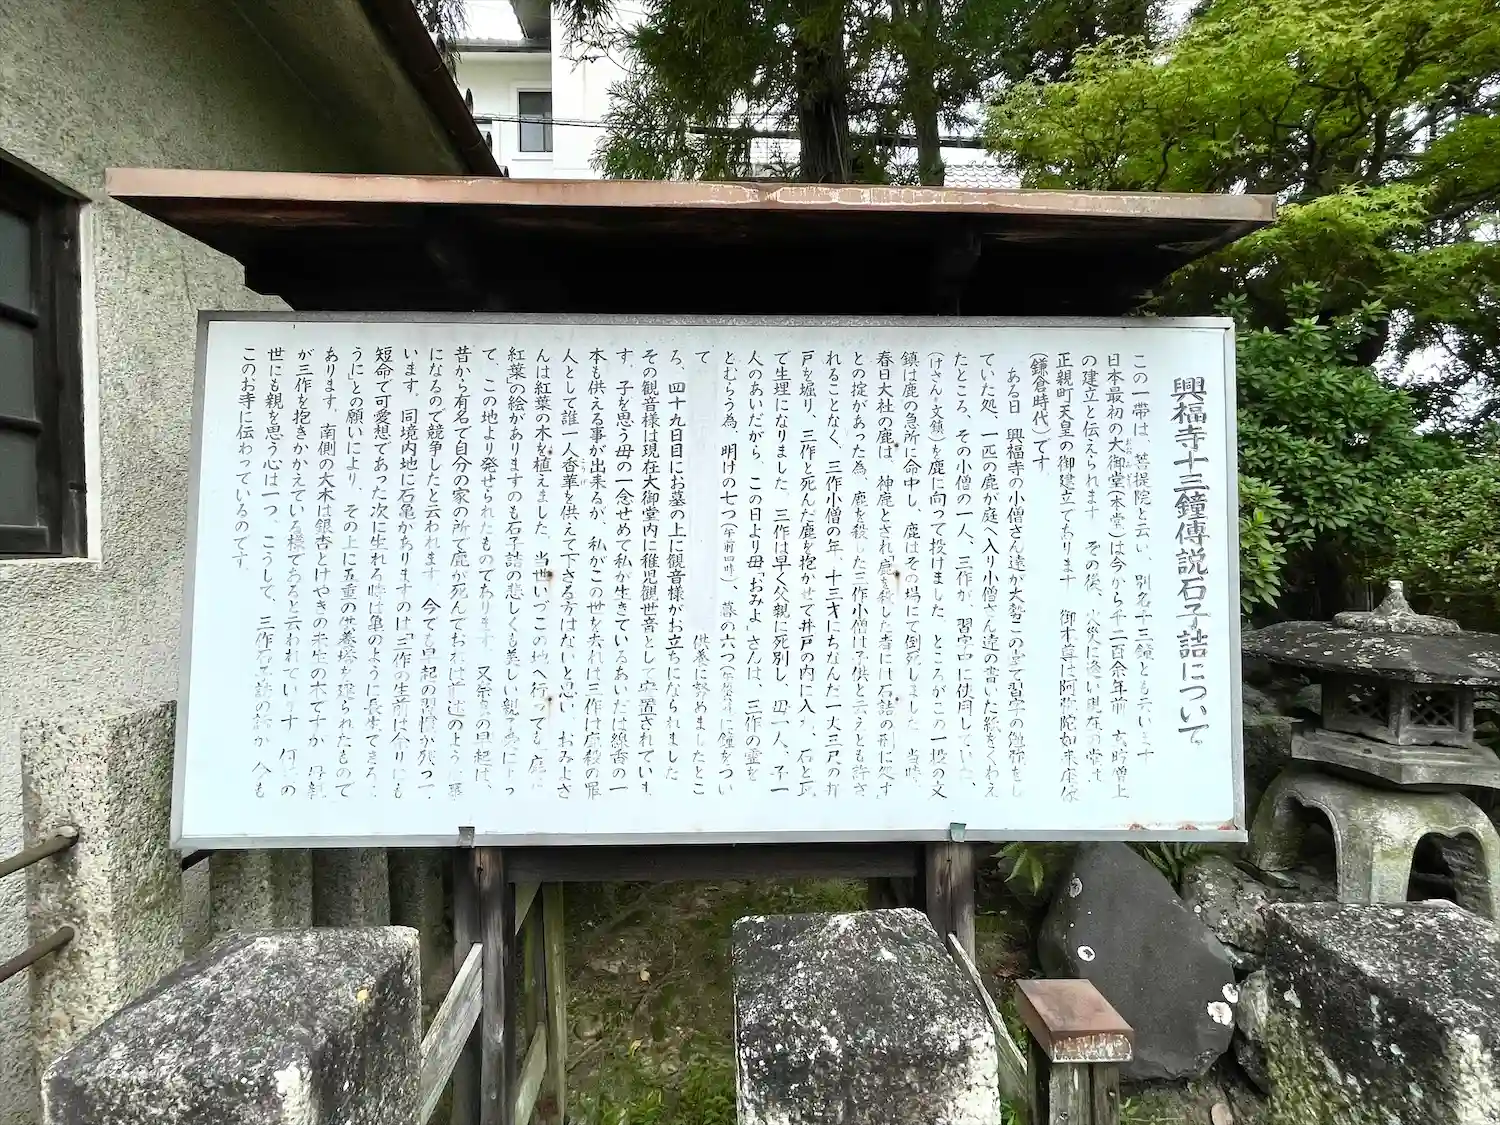 興福寺十三鐘傳説石子詰について
この一帯は、菩提院と云い、別名十三鐘とも云います
日本最初の大御堂(本堂)は今から千二百余年前、玄昉僧上
の建立と伝えられます その後、火災に逢い現在の堂は、
正親町天皇の御建立であります 御本尊は阿弥陀如来座像
(鎌倉時代)です。
ある日 興福寺の小僧さん達が大勢この堂で習字の勉強をし
ていた処、一匹の鹿が庭へ入り小僧さん達の書いた紙をくわえ
たところ、その小僧の一人、三作が、習字中に使用していた、
(けさん・文鎮)を鹿に向って投げました ところがこの一投の文
鎮は鹿の急所に命中し、鹿はその場にて倒死しました 当時、
春日大社の鹿は、神鹿とされ鹿を殺した者には石詰の刑に処す
との掟があった為、鹿を殺した三作小僧は子供と云えども許さ
れることなく、三作小僧の年、十三才にちなんだ一丈三尺の井
戸を堀り、三作と死んだ鹿を抱かせて井戸の内に入れ、石と瓦
て生埋になりました 三作は早く父親に死別し、母一人、子一
人のあいだがら、この日より母「おみよ」さんは、三作の霊を
とむらう為、明けの七つ(午前四時)、暮の六つ に鐘をつい
て 供養に努めましたとこ
ろ、四十九日目にお墓の上に観音様がお立ちになられました
その観音様は現在大御堂内に稚児観世音として安置されていま
す。子を思う母の一念せめて私が生きているあいだは線香の一
本も供える事が出来るが、私がこの世を去れば三作は鹿殺の罪
人として誰一人香華を供えて下さる方はないと思い、おみよさ
んは紅葉の木を植えました。当世いづこの地へ行っても、鹿に
紅葉の絵がありますのも石子詰の悲しくも美しい親子愛によっ
て、この地より発せられたものであります。又奈良の早起は、
昔から有名で自分の家の所で鹿が死んでおれば前述のような罪
になるので競争したと云われます。今でも早起の習慣が残って
います。同境内地に石亀がありますのは「三作の生前は余りにも
短命で可愛想であった次に生れる時は亀のように長生できるよ
うに」との願いにより、その上に五重の供養塔を建られたもので
あります。南側の大木は銀杏とけやきの未生の木ですが 母親
が三作を抱きかかえている様であると云われています 何時の
世にも親を思う心は一つ、こうして、三作石子詰の話が、今も
このお寺に伝わっているのです。